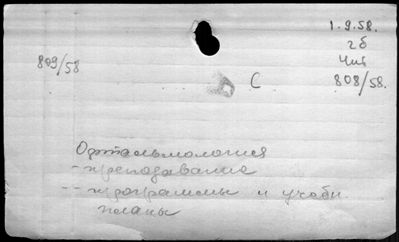 1.9.58.
2 б
Чит
809/58
С
808/58.
Офтальмология
- преподавание
-- программы и учебн.
планы